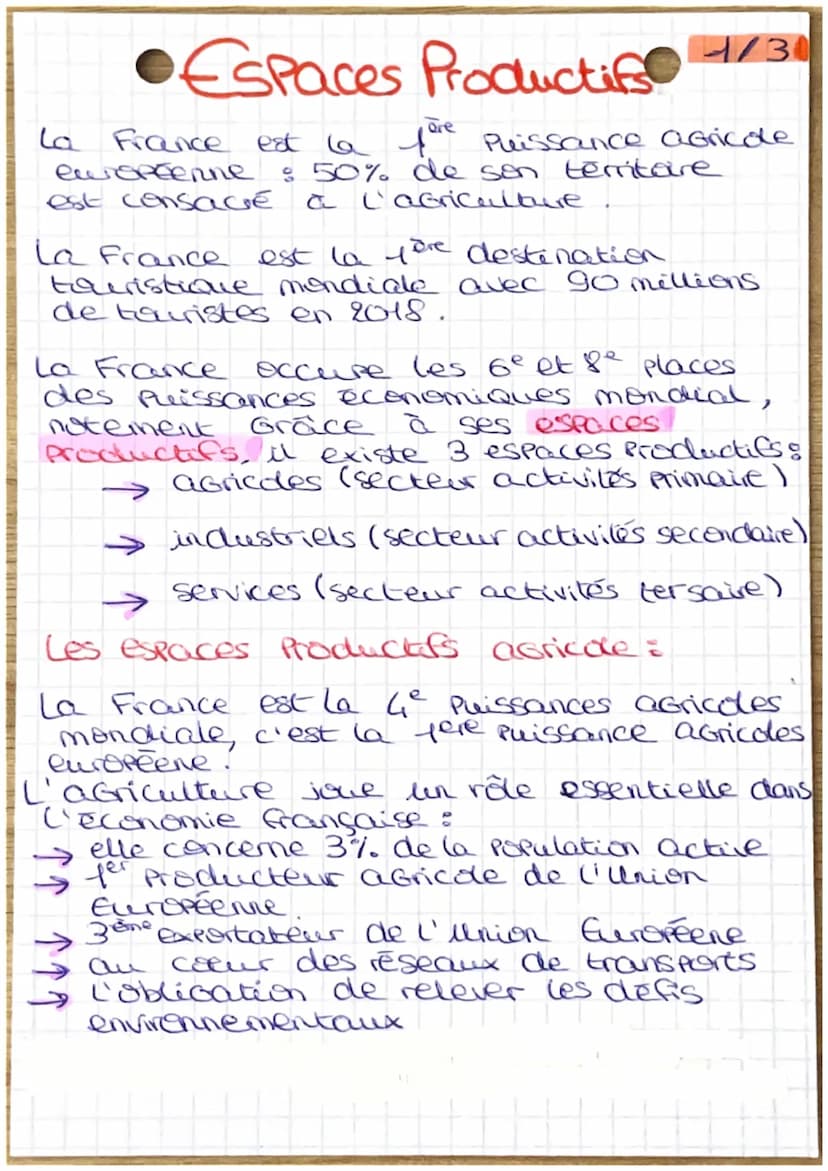 Espaces Productifs 1/3
La France est la 1ère Puissance agricole
européenne : 50% de son térritoire
est consacré à l'agriculture.
La France est la 1ère destination
touristique mondiale avec 90 millions
de touristes en 2018.
La France occupe les 6e et 8e places
des puissances économiques mondial,
notement Grâce à ses espaces
productifs, il existe 3 espaces productifs :
→ agricoles (secteur activités primaire)
→ industriels (secteur activités secondaire)
→ services (secteur activités tersaire)
Les espaces Productifs agricole :
La France est la 4e Puissances agricoles
mondiale, c'est la 1ère puissance agricoles
européene.
L'agriculture joue un rôle essentielle dans
l'économie française :
→ elle concerne 3% de la population active
→ 1er Producteur agricole de l'Union
Européenne.
→ 3ème exportateur de l'Union Européene
→ au coeur des réseaux de transports
→ L'obligation de relever les défis
environnementaux